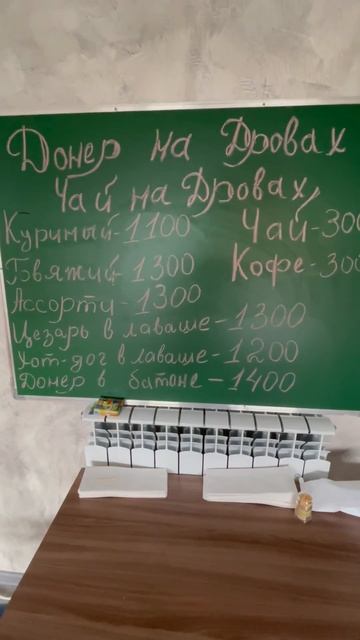 Донер на Дровах
Чай на Дровах,
Куриный-1100
Чай-300
Говяжий-1300
Кофе-300
Ассорти-1300
Цезарь в лаваше-1300
Хот-дог в лаваше-1200
Донер в батоне-1400